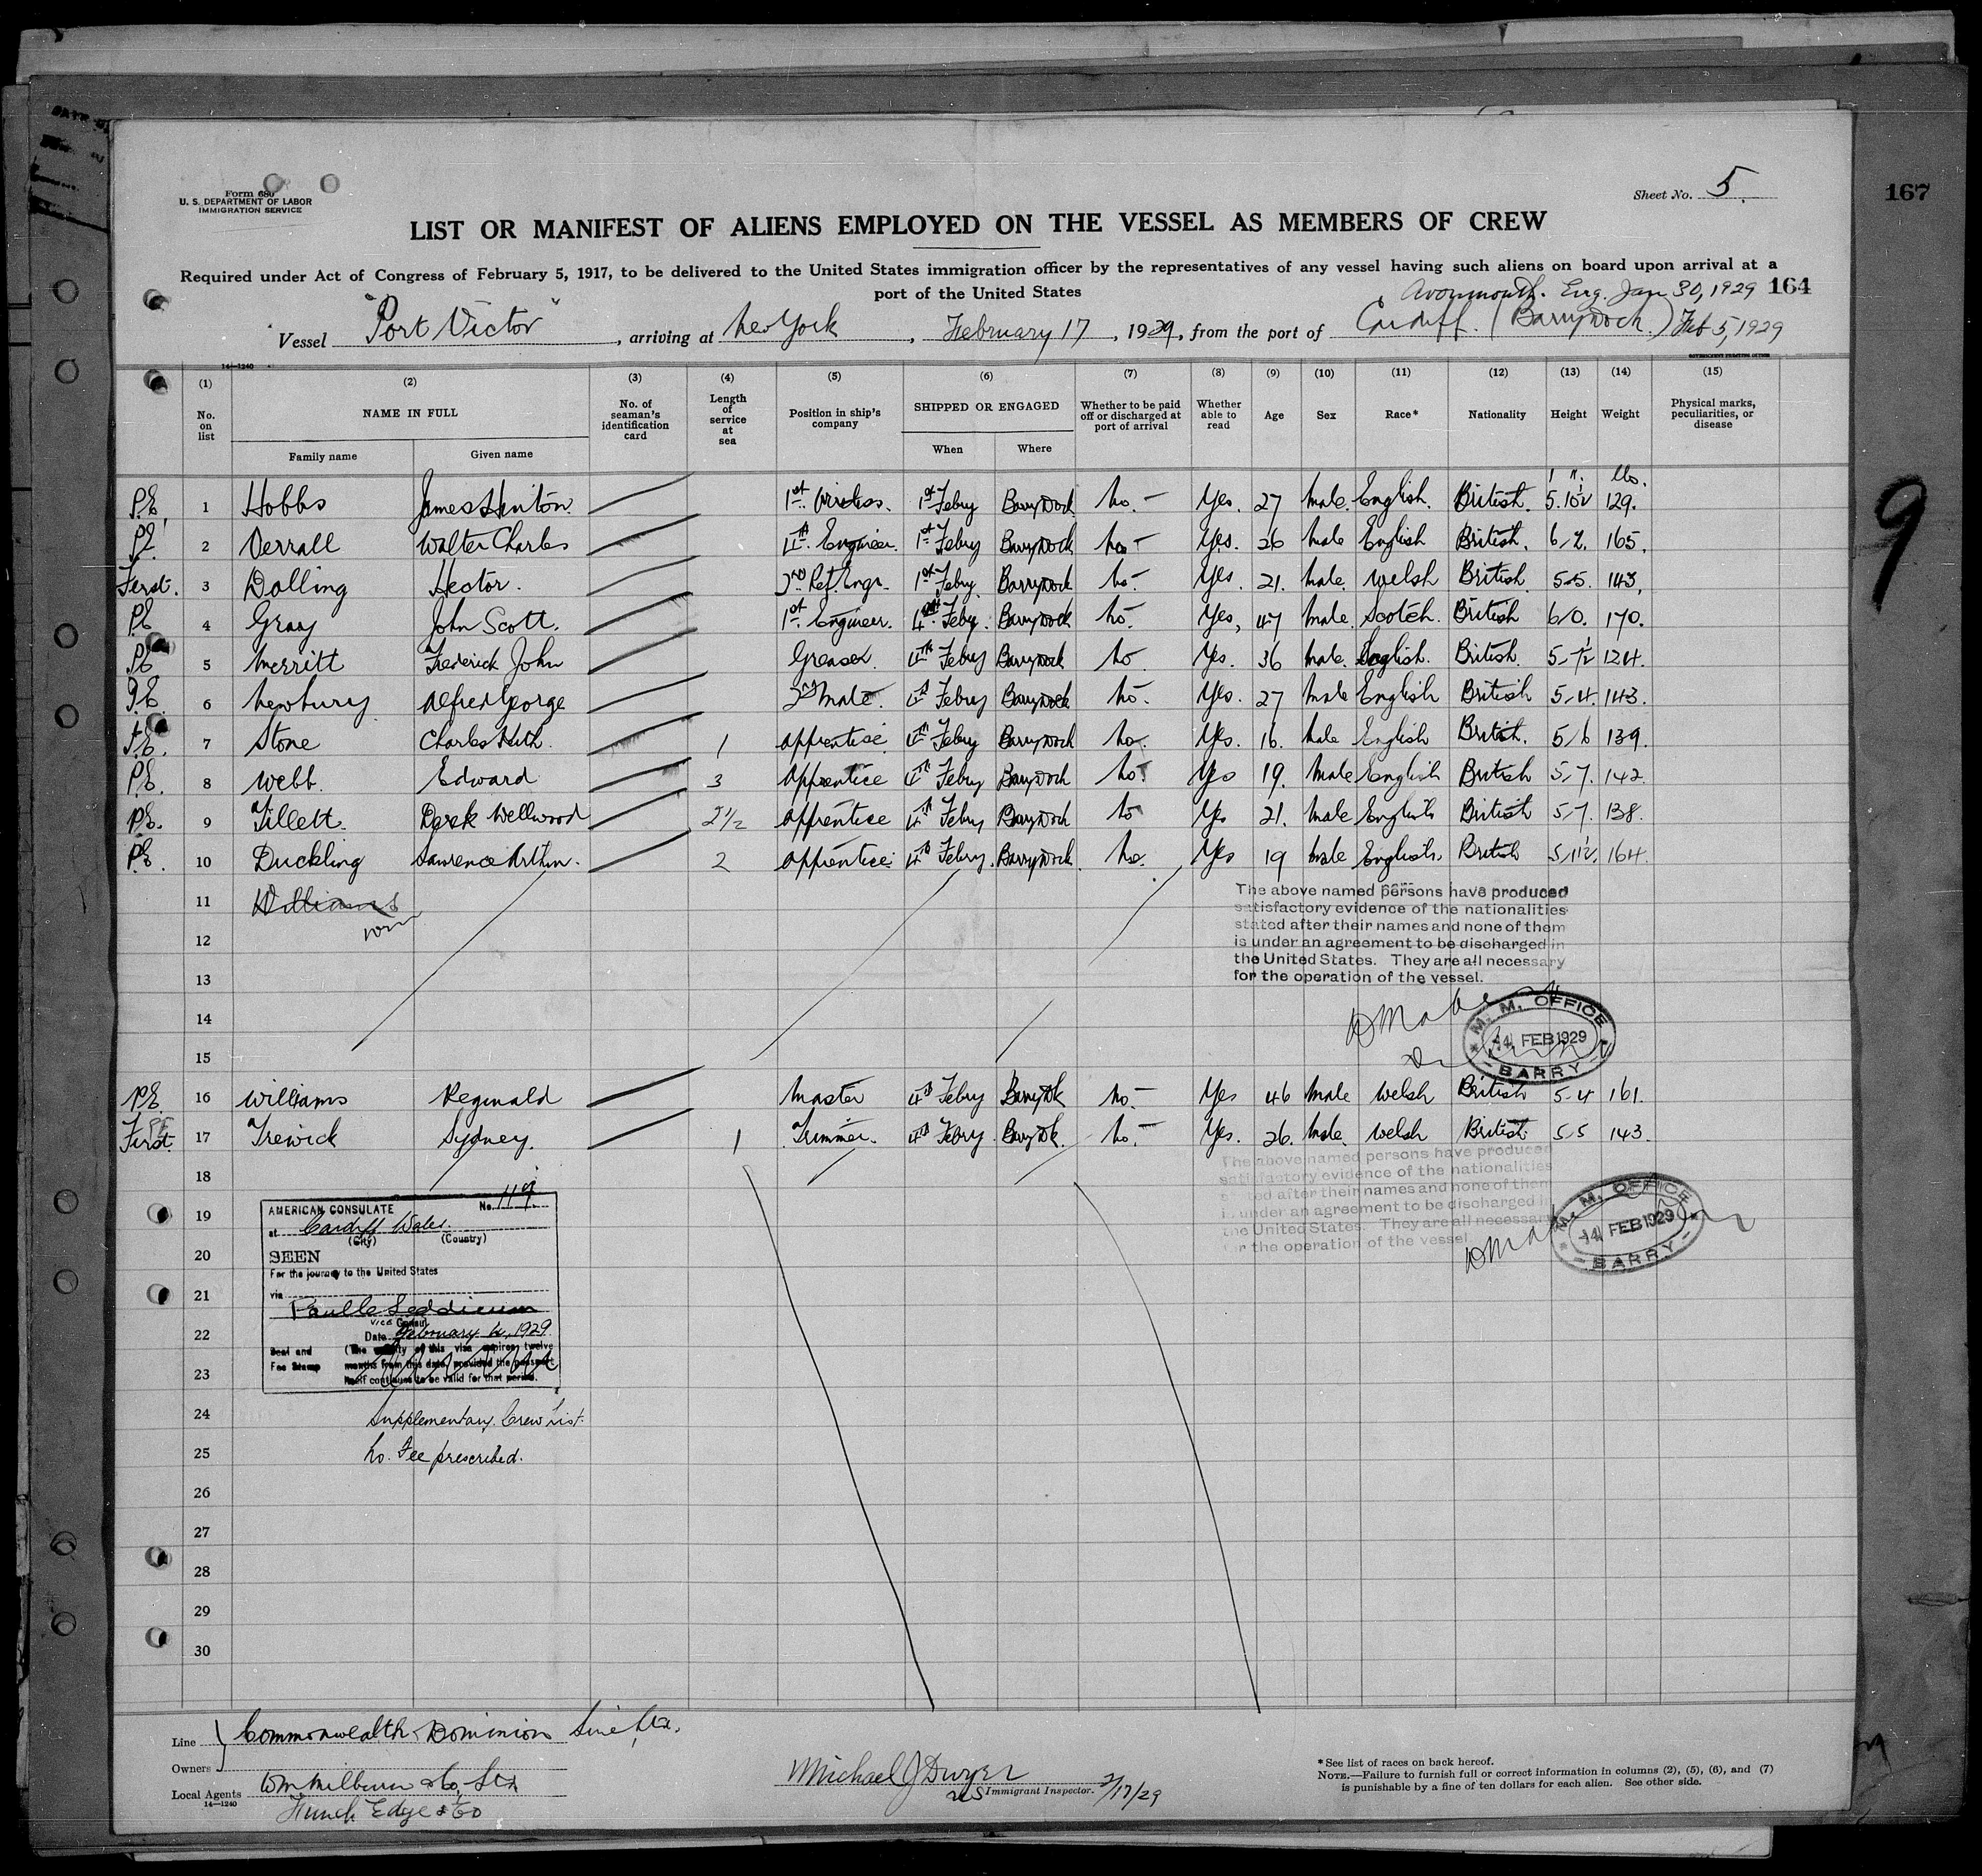 167
Form 680
U. S. DEPARTMENT OF LABOR
IMMIGRATION SERVICE
Sheet No. 5.
LIST OR MANIFEST OF ALIENS EMPLOYED ON THE VESSEL AS MEMBERS OF CREW
Required under Act of Congress of February 5, 1917, to be delivered to the United States immigration officer by the representatives of any vessel having such aliens on board upon arrival at a
port of the United States
Avonmouth. Eng. Jan 30, 1929 164
Vessel "Port Victor", arriving at New York, February 17, 1929, from the port of Cardiff. (Barry Dock.) Feb 5, 1929
14—1240
(1) (2) (3) (4) (5) (6) (7) (8) (9) (10) (11) (12) (13) (14) (15)
No. on list NAME IN FULL Family name Given name No. of seaman's identification card Length of service at sea Position in ship's company SHIPPED OR ENGAGED When Where Whether to be paid off or discharged at port of arrival Whether able to read Age Sex Race* Nationality Height Weight Physical marks, peculiarities, or disease
lbs.
P.E. 1 Hobbs James Henton. 1st Wireless. 1st Febry Barry Dock no.- Yes. 27 male. English. British. 5.10½ 129.
P.E. 2 Verrall Walter Charles 4th Engineer. 1st Febry Barry Dock no- Yes. 26 male English British. 6/2. 165.
First. 3 Dalling Hector. 2nd Ref. Engr. 1st Febry Barry Dock no- Yes. 21. male. Welsh British 5-5. 143.
P.E 4 Gray John Scott. 1st Engineer. 4th Feby. Barry Dock no. Yes, 47 male. Scotch. British 6/0. 170.
P.E 5 Merritt Frederick John Greaser. 4th Febry Barry Dock no Yes. 36 male. English. British. 5-7½ 124.
P.E. 6 Newbury Alfred George 2nd Mate. 4th Febry Barry Dock no. Yes. 27 male English British 5-4. 143.
P.E. 7 Stone Charles Keith. 1 apprentise 4th Febry Barry Dock no. Yes. 16. male English British. 5/6 139.
P.E. 8 Webb. Edward 3 apprentice 4th Febry Barry Dock no. Yes 19. male English British 5-7. 142.
P.E. 9 Tillett. Derek Wellwood 2½ apprentice 4th Febry Barry Dock no Yes 21. male English British 5-7. 138.
P.E. 10 Duckling Lawrence Arthur. 2 apprentice 4th Febry. Barry Dock. no. Yes 19 male English. British 5/1½ 164.
11 Williams
12
13
14
15
The above named persons have produced
satisfactory evidence of the nationalities
stated after their names and none of them
is under an agreement to be discharged in
the United States. They are all necessary
for the operation of the vessel.
M. M. OFFICE
4 FEB 1929
BARRY
P.E. 16 Williams Reginald Master 4th Febry Barry Dk no.- Yes 46 male Welsh British 5-4 161.
First. 17 Trewick Sydney. 1 Trimmer. 4th Febry. Barry Dk. no.- Yes. 26. male. Welsh British 5.5 143.
18
19
20
21
22
23
24
25
26
27
28
29
30
The above named persons have produced
satisfactory evidence of the nationalities
stated after their names and none of them
is under an agreement to be discharged in
the United States. They are all necessary
for the operation of the vessel.
M. M. OFFICE
4 FEB 1929
BARRY
AMERICAN CONSULATE No. 119.
at Cardiff Wales.
(City) (Country)
SEEN
For the journey to the United States
via
Vice Consul
Date February 4, 1929.
Seal and Fee Stamp
(The validity of this visa expires twelve
months from this date, provided the passport
itself continues to be valid for that period.
Supplementary. Crew List.
No. Fee prescribed.
9
Line Commonwealth & Dominion Line Ltd.
Owners
Local Agents Wm Milburn & Co, Ltd
14—1240
Funch Edye & Co
Michael J Dwyer
US Immigrant Inspector. 2/17/29
*See list of races on back hereof.
NOTE.—Failure to furnish full or correct information in columns (2), (5), (6), and (7)
is punishable by a fine of ten dollars for each alien. See other side.